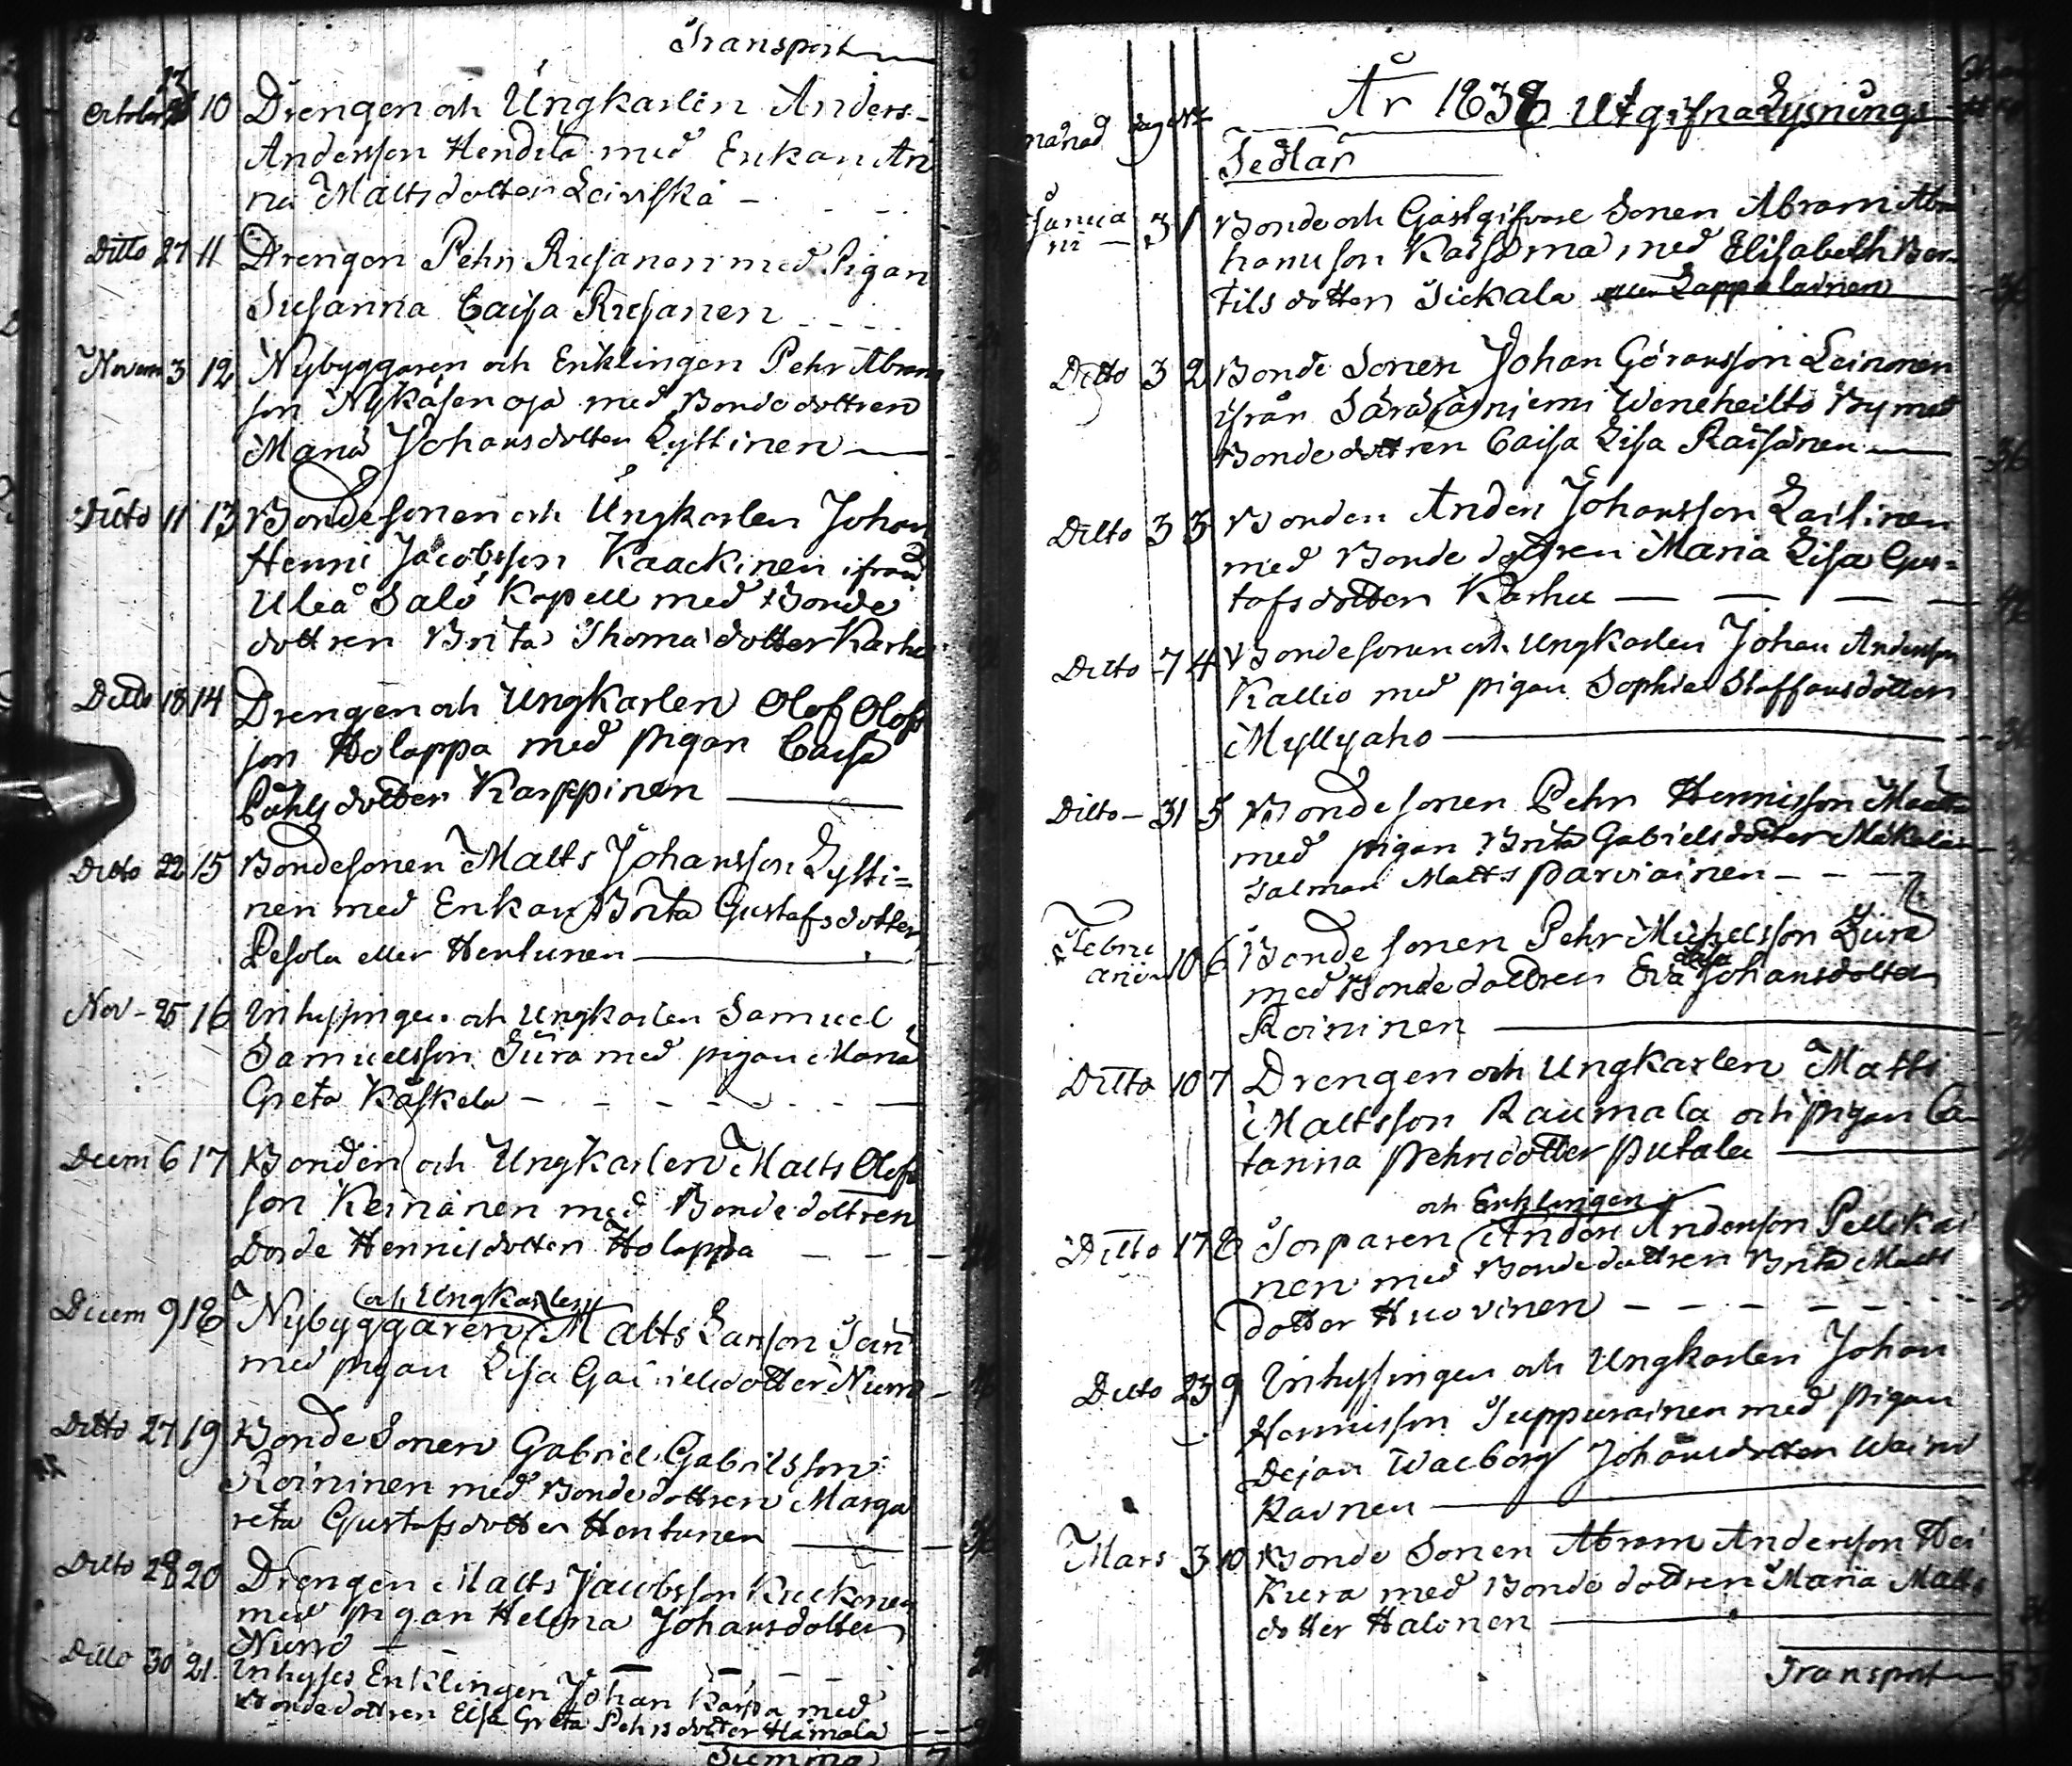 Transport
October 13 10 Drengen och Ungkarlen Anders
Andersson Hendilä med Enkan An
na Mattsdotter Leiviskä -
Ditto 27 11 Drengen Pehr Riesanen med Pigan
Susanna Caisa Riesanen
Novem 3 12 Nybyggaren och Enklingen Pehr Abram
son Nykäsenoja med Bondedottren
Maria Johansdotter Lyttinen
Ditto 11 13 Bondesonen och Ungkarlen Johan
Henric Jacobsson Kaackinen ifrån
Uleå Salo Kapell med Bonde
dottren Brita Thomadotter Karhu
Ditto 18 14 Drengen och Ungkarlen Olof Olofs
son Holappa med pigan Caisa
Påhlsdotter Karppinen
Ditto 22 15 Bondesonen Matts Johansson Lytti=
nen med Enkan Brita Gustafsdotter
Pesola eller Hentunen
Nov - 25 16 Inhysingen och Ungkarlen Samuel
Samuelsson Jura med pigan Maria
Greta Käskelä
Decem 6 17 Bonden och Ungkarlen Matts Olofs
son Keinänen med Bondedottren
Dorde Hennisdotter Holappa
och Ungkarlen
Decem 9 18 Nybyggaren Matts Larsson
med pigan Lisa Gabrielsdotter Nurro
Ditto 27 19 Bonde Sonen Gabriel Gabrielsson
Roininen med Bondedottren Marga
reta Gustafsdotter Hentunen
Ditto 28 20 Drengen Matts Jacobsson Kuckonen
med pigan Helena Johansdotter
Nurro
Ditto 30 21 Inhyses Enklingen Johan Karppa med
Bondedottren Elsa Greta Pehrsdotter Hamala
Summa
År 1838 Utgifna Lysnings
månad Dag No
Sedlar
Janua
ri - 3 1 Bonde och Gästgifvare Sonen Abram Abra
hamsson Kaisoma med Elisabeth Ber
tilsdotter Sickala eller Lappalainen
Ditto 3 2 Bonde Sonen Johan Göransson Leinonen
ifrån Säräisniemi Weneheitto By med
Bondedottren Caisa Lisa Raisänen
Ditto 3 3 Bonden Anders Johansson Laitinen
med Bonde dottren Maria Lisa Gus=
tafsdotter Karhu
Ditto 7 4 Bondesonen och Ungkarlen Johan Andersson
Kallio med pigan Sophia Staffansdotter
Myllyaho
Ditto - 31 5 Bondesonen Pehr Hennisson
med pigan Brita Gabrielsdotter
Matts Parviainen
Febru
arii 10 6 Bonde sonen Pehr Michelsson Jura
med Bondedottren Eva Johansdotter
Roininen
Ditto 10 7 Drengen och Ungkarlen Matts
Mattsson Raumala och pigan Ca
tarina Pehrsdotter Putala
och Enklingen
Ditto 17 8 Torparen Anders Andersson Pellikai
nen med Bondedottren Brita Matts
dotter Huovinen
Ditto 23 9 Inhysingen och Ungkarlen Johan
Hennisson Juppurainen med pigan
Dejan Walborg Johansdotter Wain
kainen
Mars 3 10 Bonde Sonen Abram Andersson Hei
kura med Bonde dottren Maria Matts
dotter Halonen
Transport